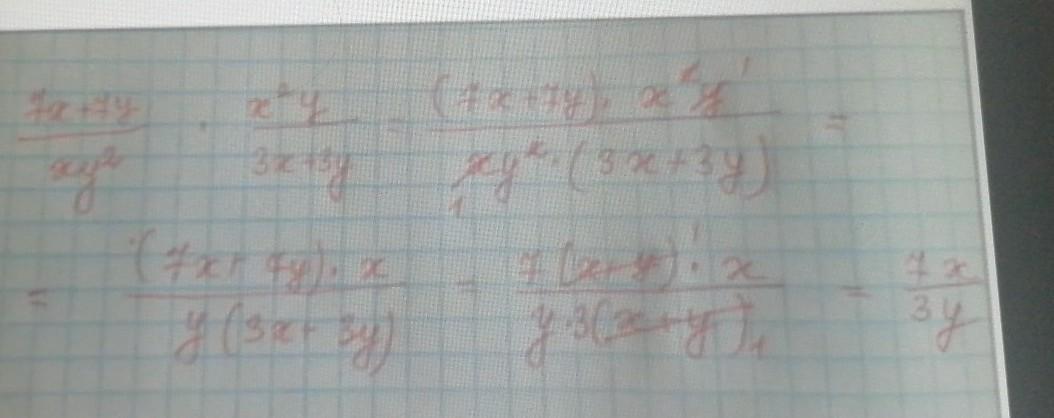 (7x+7y)/(xy²) · (x²y)/(3x+3y) = ((7x+7y) · x²y¹)/(₁xy² · (3x+3y)) =
= ((7x+7y) · x)/(y(3x+3y)) = (7(x+y)¹ · x)/(y·3(x+y)₁) = (7x)/(3y)